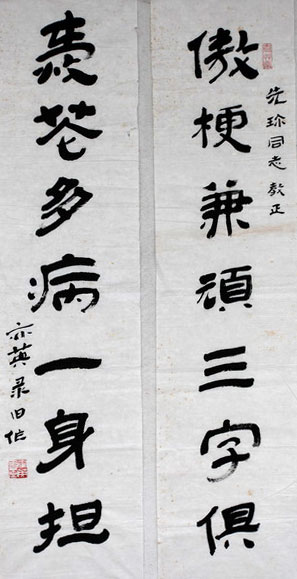 傲梗兼頑三字俱
先珍同志教正
多病一身担
亦英录旧作